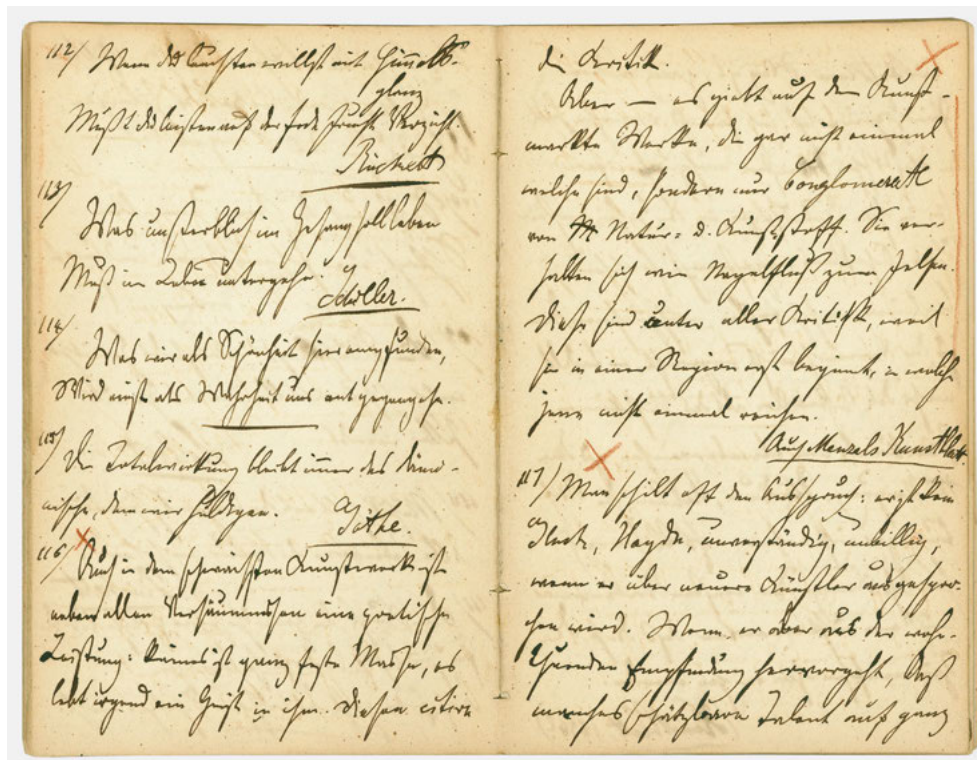 112/ Wenn du leuchten willst mit Himmels-
glanz
Mußt du leisten auf der Erde Frucht Verzicht.
Rückert
113/
Was unsterblich im Gesang soll leben
Muß im Leben untergehn.
Schiller.
114/
Was wir als Schönheit hier empfunden,
Wird einst als Wahrheit uns entgegengehn.
115/ Die Totalwirkung bleibt immer das Dämo-
nische, dem wir huldigen.
Göthe.
116/ Auch in dem schwächsten Kunstwerk ist
neben allen Versäumnissen eine poetische
Leistung: keines ist ganz feste Masse, es
lebt irgend ein Geist in ihm. Diesen citire
die Kritik.
Aber — es giebt auf dem Kunst-
markte Werke, die gar nicht einmal
welche sind, sondern nur Conglomerate
von Natur- u. Kunststoff. Sie ver-
halten sich wie Nagelfluß zum Felsen.
Diese sind unter aller Kritik, weil
sie in einer Region erst beginnt, in welche
jene nicht einmal reichen.
Aus Menzels Kunstblatt.
117/ Man schilt oft den Ausspruch: er ist kein
Gluck, Haydn, unverständig, unbillig,
wenn er über neuere Künstler ausgespro-
chen wird. Wenn er aber aus der wohl-
thuenden Empfindung hervorgeht, daß
manches schätzbare Talent auf ganz